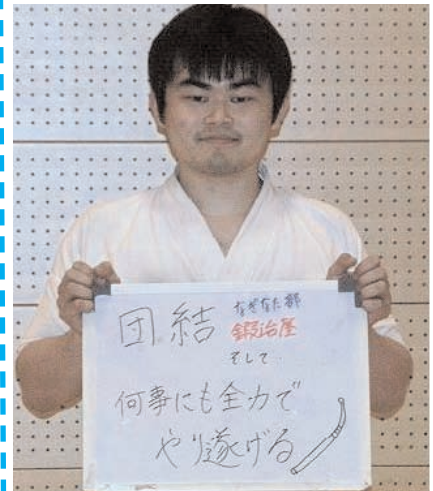 団結 なぎなた部
鍛冶屋
そして
何事にも全力で
やり遂げる